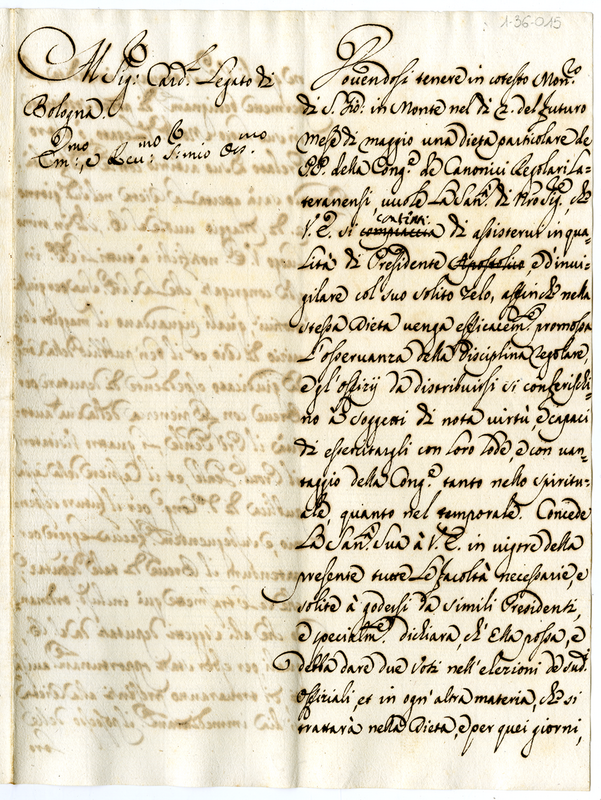 1-36-015
Al Sig: Card.l Legato di
Bologna.
Em:mo, e Reu:mo S: mio Oss:mo
Douendosi tenere in cotesto Mon.ro
di S. Gio: in Monte nel dì 2. del futuro
mese di maggio una dieta particolare de
PP. della Cong.e de Canonici Regolari La=
teranensi uuole La San.tà di Nro Sig.re, che
V. E. si compiaccia contenti di assisterui in qua=
lità di Presidente Apostolico, e d'inui=
gilare col suo solito Zelo, affinche nella
stessa Dieta uenga efficacem.te promossa
L'osseruanza della Disciplina Regolare,
e gl'Offizij da distribuirsi si conferischi=
no à Soggetti di nota uirtù, e capaci
di essercitargli con loro lode, e con uan=
taggio della Cong.e tanto nello spiritu=
ale, quanto nel temporale. Concede
La San.tà Sua à V. E. in uigore della
presente tutte Le facoltà necessarie, e
solite à godersi da simili Presidenti,
e specialm.te dichiara, ch'Ella possa, e
debba dare due Voti nell'elezioni de sud.i
Offiziali, et in ogn'altra materia, che si
trattarà nella Dieta, e per quei giorni,